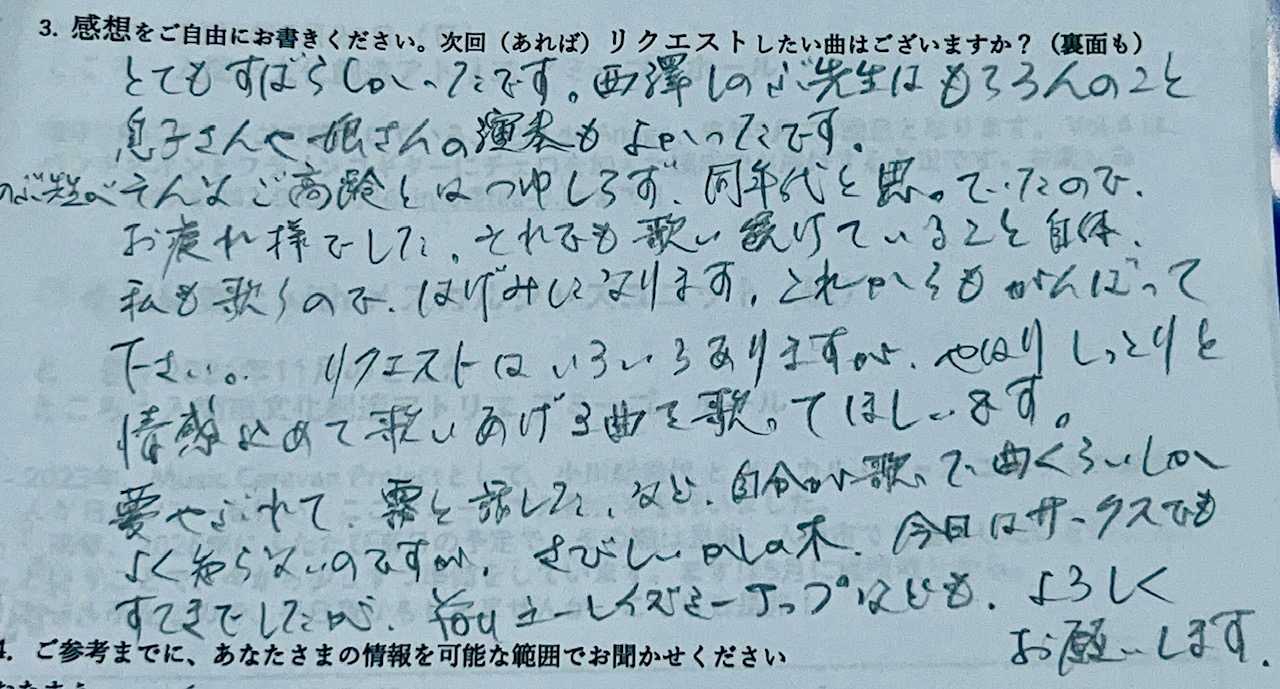 3. 感想をご自由にお書きください。次回（あれば）リクエストしたい曲はございますか？（裏面も）
とてもすばらしかったです。西澤しのぶ先生はもちろんのこと
息子さんや娘さんの演奏もよかったです。
のぶ先生が そんなご高齢とはつゆしらず、同年代と思っていたので、
お疲れ様でした。それでも歌い続けていること自体、
私も歌うので、はげみになります。これからもがんばって
下さい。 リクエストはいろいろありますが、やはりしっとりと
情感込めて歌いあげる曲を歌ってほしいます。
夢やぶれて、霧と話した、など、自分が歌って曲くらいしか
よく知らないのですが、さびしいかしの木、今日はサークスでも
すてきでしたが、 ユーレイズミーアップなども、よろしく
お願いします。
4. ご参考までに、あなたさまの情報を可能な範囲でお聞かせください